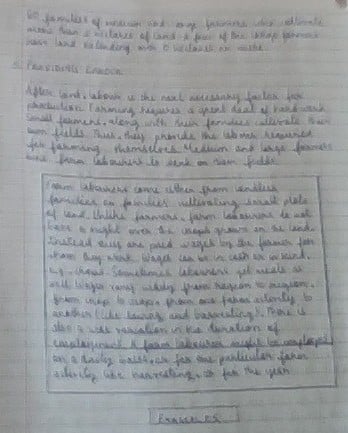 60 families of medium and large farmers who cultivate
more than 2 hectares of land. A few of the large farmers
have land extending over 10 hectares or more.
PROVIDING LABOUR
After land, labour is the next necessary factor for
production. Farming requires a great deal of hard work.
Small farmers, along with their families cultivate their
own fields. Thus, they provide the labour required
for farming themselves. Medium and large farmers
hire farm labourers to work on their fields.
Farm labourers come either from landless
families or families cultivating small plots
of land. Unlike farmers, farm labourers do not
have a right over the crops grown on the land.
Instead they are paid wages by the farmer for
whom they work. Wages can be in cash or in kind.
e.g. crops. Sometimes labourers get meals as
well. Wages vary widely from region to region,
from crop to crop, from one farm activity to
another (like sowing and harvesting). There is
also a wide variation in the duration of
employment. A farm labourer might be employed
on a daily basis, or for one particular farm
activity like harvesting, or for the year